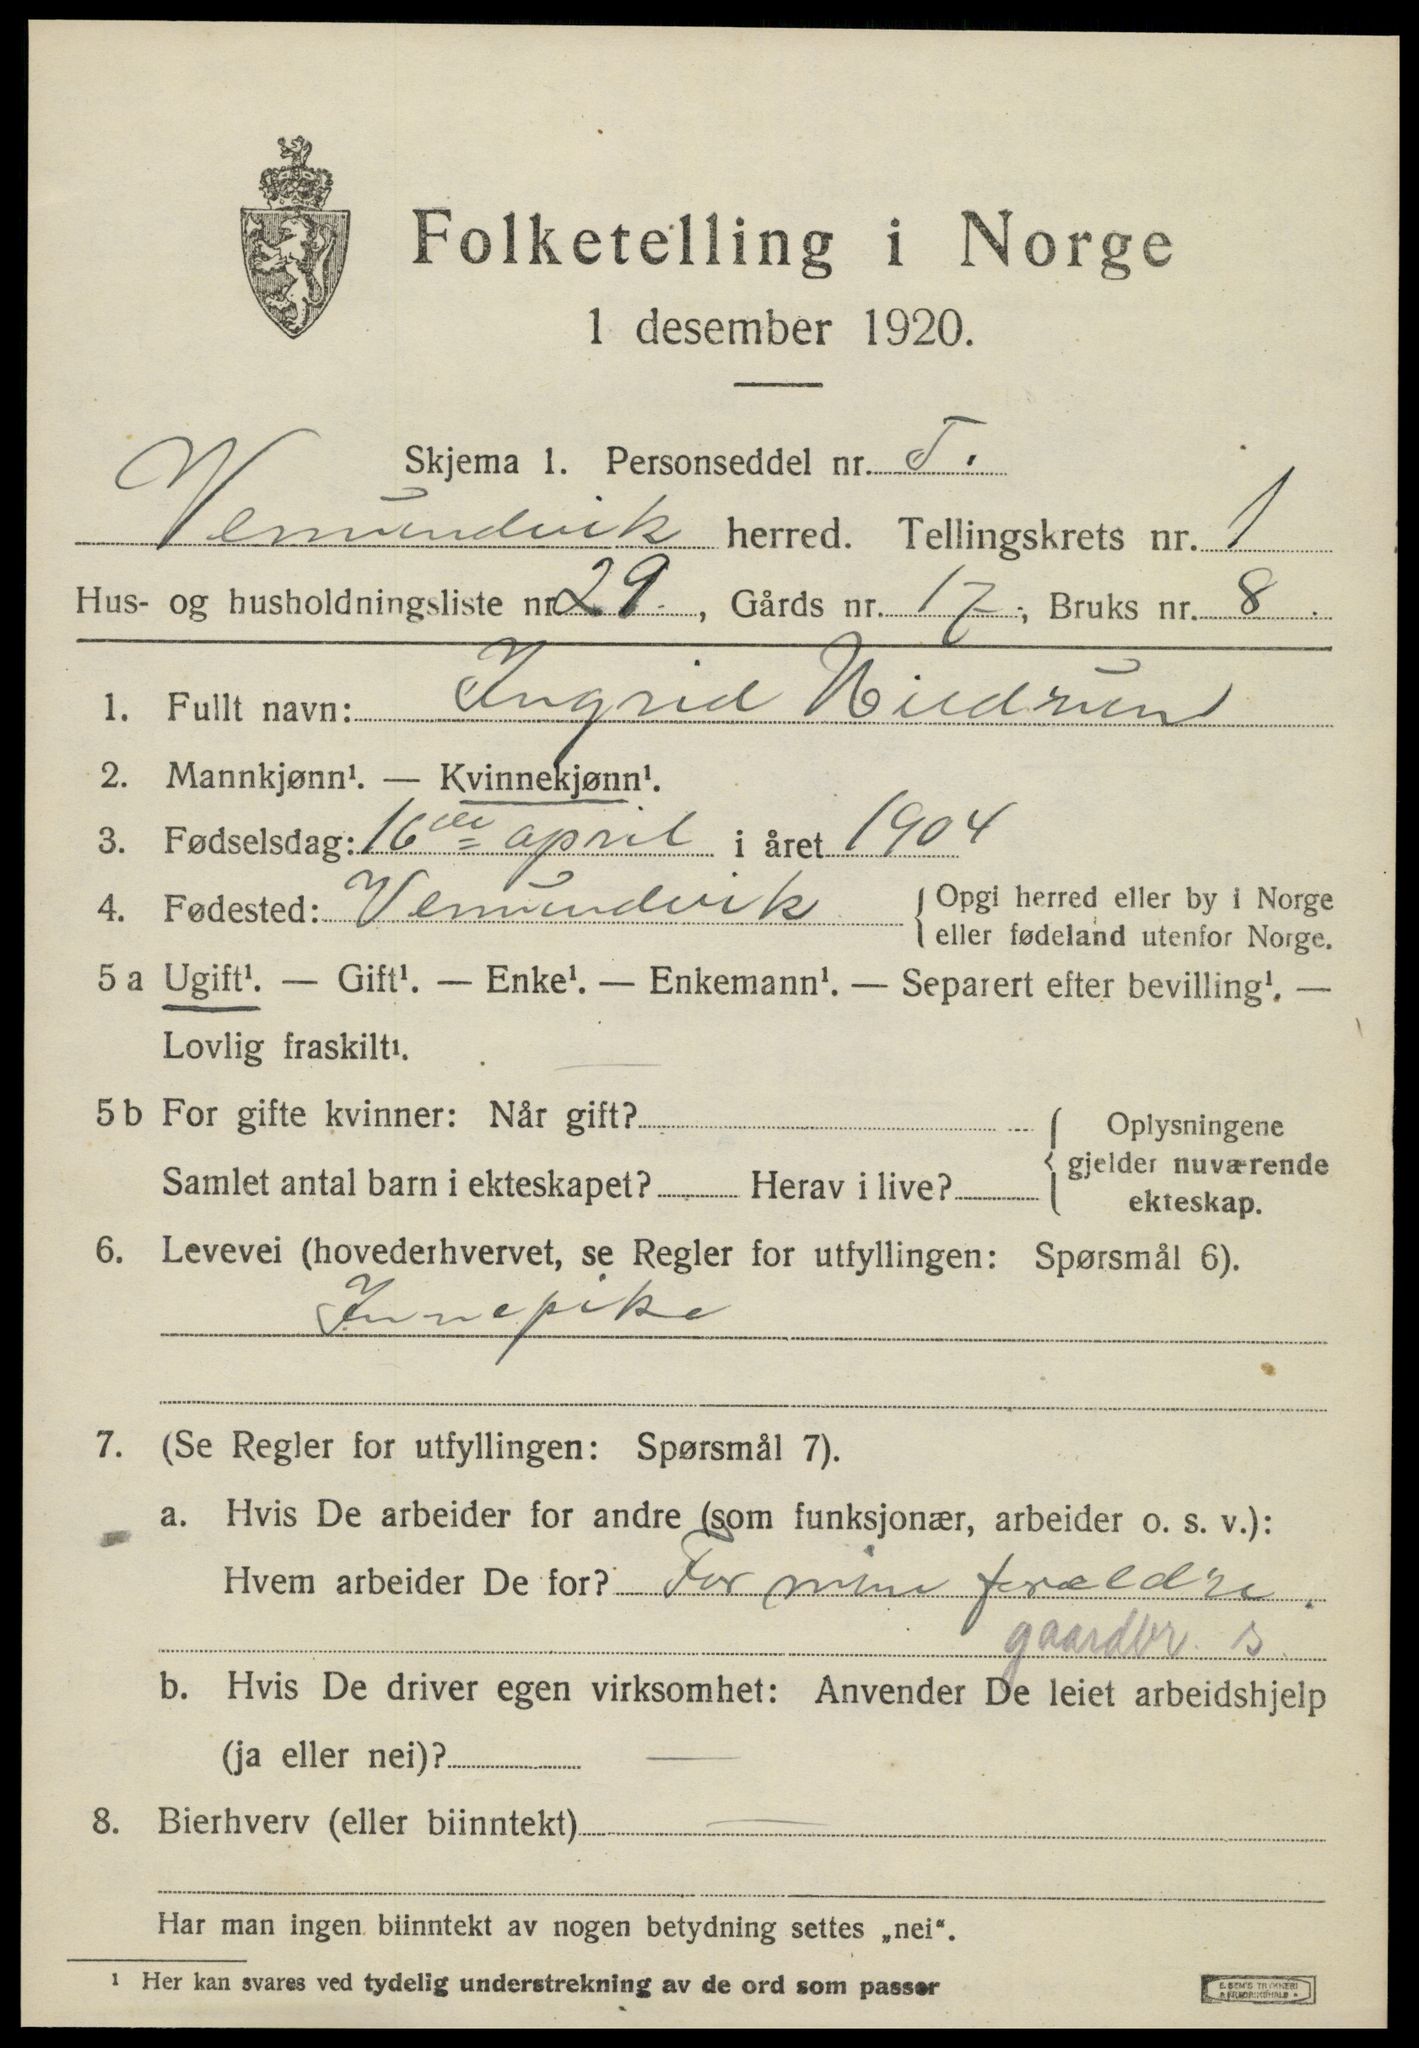 Folketelling i Norge
1 desember 1920.
Skjema 1. Personseddel nr. 5.
Vemundvik herred. Tellingskrets nr. 1
Hus- og husholdningsliste nr. 29., Gårds nr. 17; Bruks nr. 8.
1. Fullt navn: Ingrid Hildrum
2. Mannkjønn¹. — Kvinnekjønn¹.
3. Fødselsdag: 16de april i året 1904
4. Fødested: Vemundvik { Opgi herred eller by i Norge
eller fødeland utenfor Norge.
5 a Ugift¹. — Gift¹. — Enke¹. — Enkemann¹. — Separert efter bevilling¹. —
Lovlig fraskilt¹.
5 b For gifte kvinner: Når gift? { Oplysningene
gjelder nuværende
Samlet antal barn i ekteskapet? Herav i live?
ekteskap.
6. Levevei (hovederhvervet, se Regler for utfyllingen: Spørsmål 6).
Innepike
7. (Se Regler for utfyllingen: Spørsmål 7).
a. Hvis De arbeider for andre (som funksjonær, arbeider o. s. v.):
Hvem arbeider De for? For mine forældre.
gaardbr. s
b. Hvis De driver egen virksomhet: Anvender De leiet arbeidshjelp
(ja eller nei)? —
8. Bierhverv (eller biinntekt) —
Har man ingen biinntekt av nogen betydning settes „nei“.
¹ Her kan svares ved tydelig understrekning av de ord som passer
E. SEM'S TRYKKERI
FREDRIKSHALD